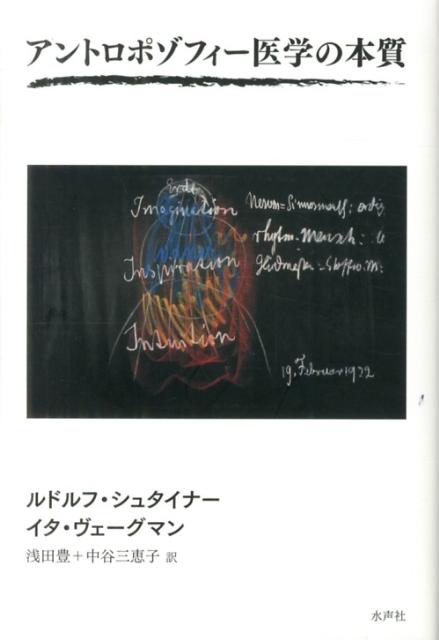 アントロポゾフィー医学の本質
Erde
Imagination
Inspiration
Intuition
rhytm.-Mensch:
19. Februar 1922
ルドルフ・シュタイナー
イタ・ヴェーグマン
浅田豊+中谷三恵子 訳
水声社